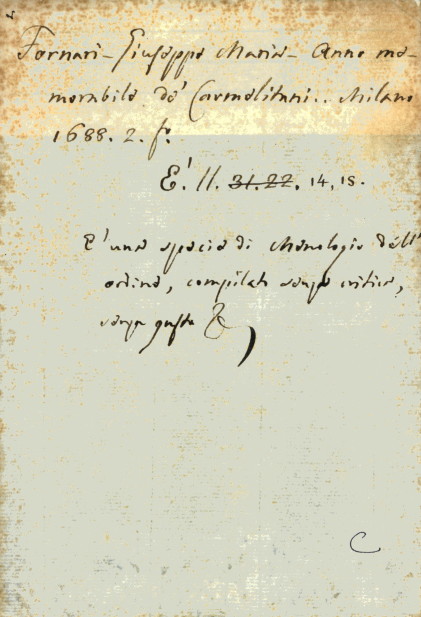 Fornari - Giuseppe Maria - Anno me-
morabile de' Carmelitani.. Milano
1688. 2. fo.
E'. II. 31.22. 14, 18.
E' una specie di Menologio dell'
ordine, compilato senza critica,
senza gusto &
C